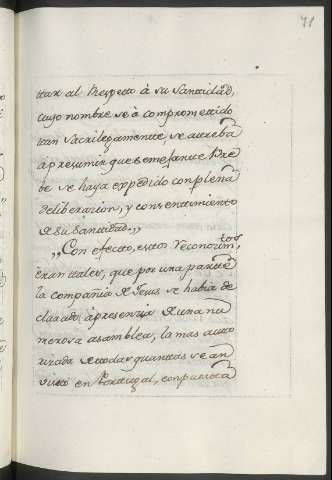 71
tar al Respecto à su Santidad,
cuyo nombre se à comprometido
tan sacrilegamente, se atreba
à presumir que semejante Bre
be se haya expedido con plena
deliberacion, y consentimiento
de su Santidad."
"Con efecto, estos reconocim.tos
eran tales, que por una parte
la compañia de Jesus se habia de
clarado à presencia de una nu
merosa asamblea, la mas auto
rizada de todas quantas se an
visto en Portugal, con